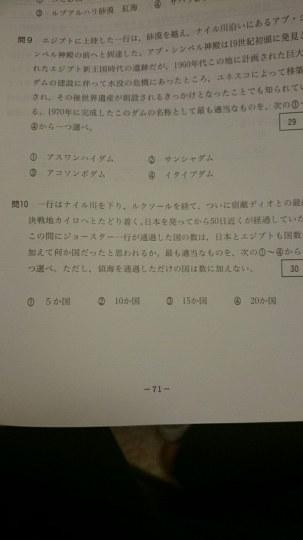 ③ ルブアルハリ砂漠 紅海 ④
問9 エジプトに上陸した一行は、砂漠を越え、ナイル川沿いにあるアブ・
ンベル神殿の前へと到達した。アブ・シンベル神殿は19世紀初頭に発見
れたエジプト新王国時代の遺跡だが、1960年代この地に計画された巨大
ダムの建設に伴って水没の危機にあったところ、ユネスコによって移築
され、その後世界遺産が創設されるきっかけとなったことでも知られてい
る。1970年に完成したこのダムの名称として最も適当なものを、次の①
④から一つ選べ。
29
① アスワンハイダム ② サンシャダム
③ アコソンボダム ④ イタイプダム
問10 一行はナイル川を下り、ルクソールを経て、ついに宿敵ディオとの最
決戦地カイロへとたどり着く。日本を発ってから50日近くが経過していた
この間にジョースター一行が通過した国の数は、日本とエジプトも国数
加えて何か国だったと思われるか。最も適当なものを、次の①～④から
つ選べ。ただし、領海を通過しただけの国は数に加えない。
30
① 5か国 ② 10か国 ③ 15か国 ④ 20か国
－71－